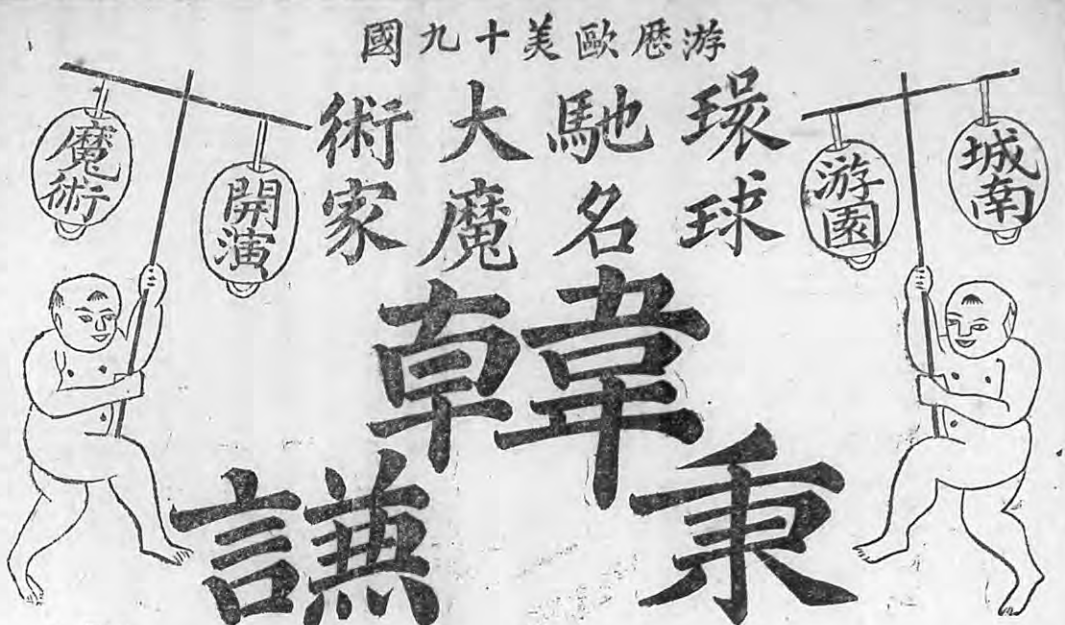 游厯歐美十九國
環球
馳名
大魔
術家
城南
游園
開演
魔術
韓
秉謙